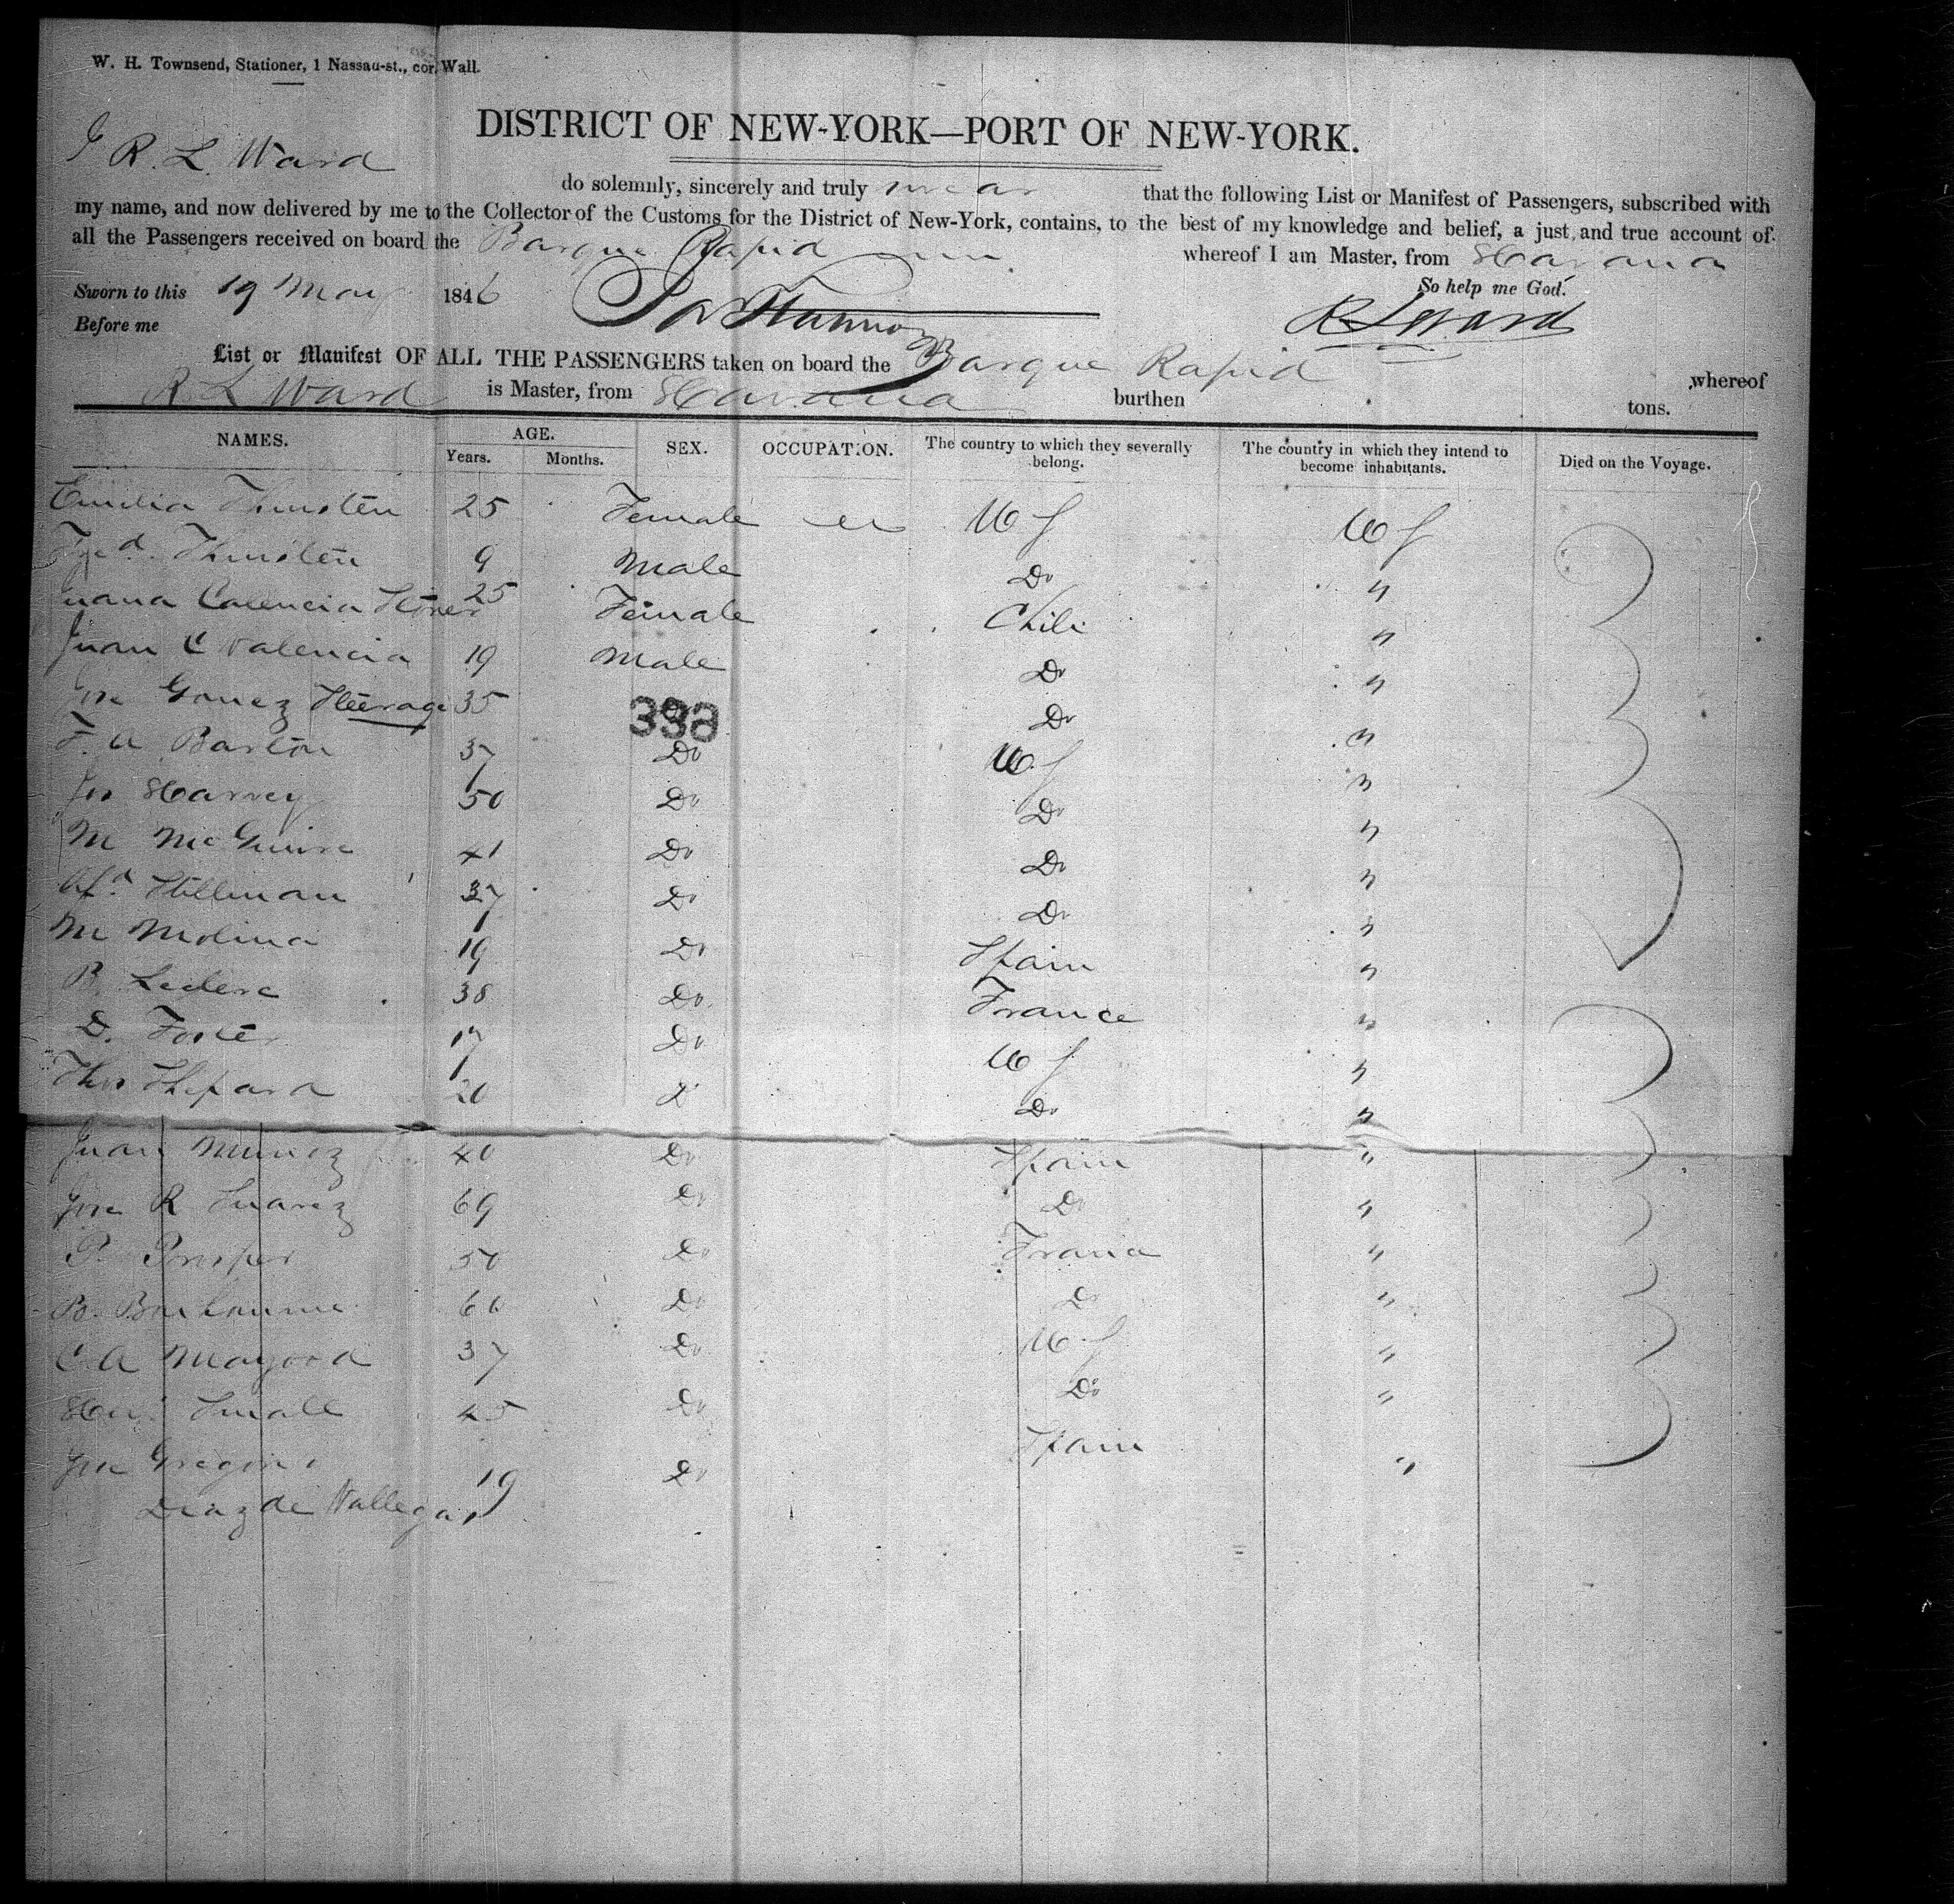 W. H. Townsend, Stationer, 1 Nassau-st., cor. Wall.
DISTRICT OF NEW-YORK—PORT OF NEW-YORK.
I R. L. Ward do solemnly, sincerely and truly swear that the following List or Manifest of Passengers, subscribed with
my name, and now delivered by me to the Collector of the Customs for the District of New-York, contains, to the best of my knowledge and belief, a just and true account of
all the Passengers received on board the Barque Rapid whereof I am Master, from Havana
Sworn to this 19 May 1846 So help me God.
Before me R L Ward
List or Manifest OF ALL THE PASSENGERS taken on board the Barque Rapid whereof
R L Ward is Master, from Havana burthen tons.
NAMES. AGE. SEX. OCCUPATION. The country to which they severally belong. The country in which they intend to become inhabitants. Died on the Voyage.
Years. Months.
Emilia 25 Female U S U S
9 Male Do "
Juana Valencia 25 Female Chili "
Juan C Valencia 19 Male Do "
Jose Gomez Steerage 35 Do "
398
F. A Barton 37 Do U S "
Jos Harvey 50 Do Do "
M McGuire 41 Do Do "
Stillman 37 Do Do "
M Molina 19 Do Spain "
B. Leclerc 38 Do France "
D. Foster 17 Do U S "
Thos Shepard 20 Do "
Juan Munoz 40 Do Spain "
Jose R Suarez 69 Do Do "
P. Prosper 50 Do France "
B. 60 Do Do "
C. A 37 Do U S "
Small 45 Do Do "
Jose Gregorio 19 Do Spain "
Diaz de